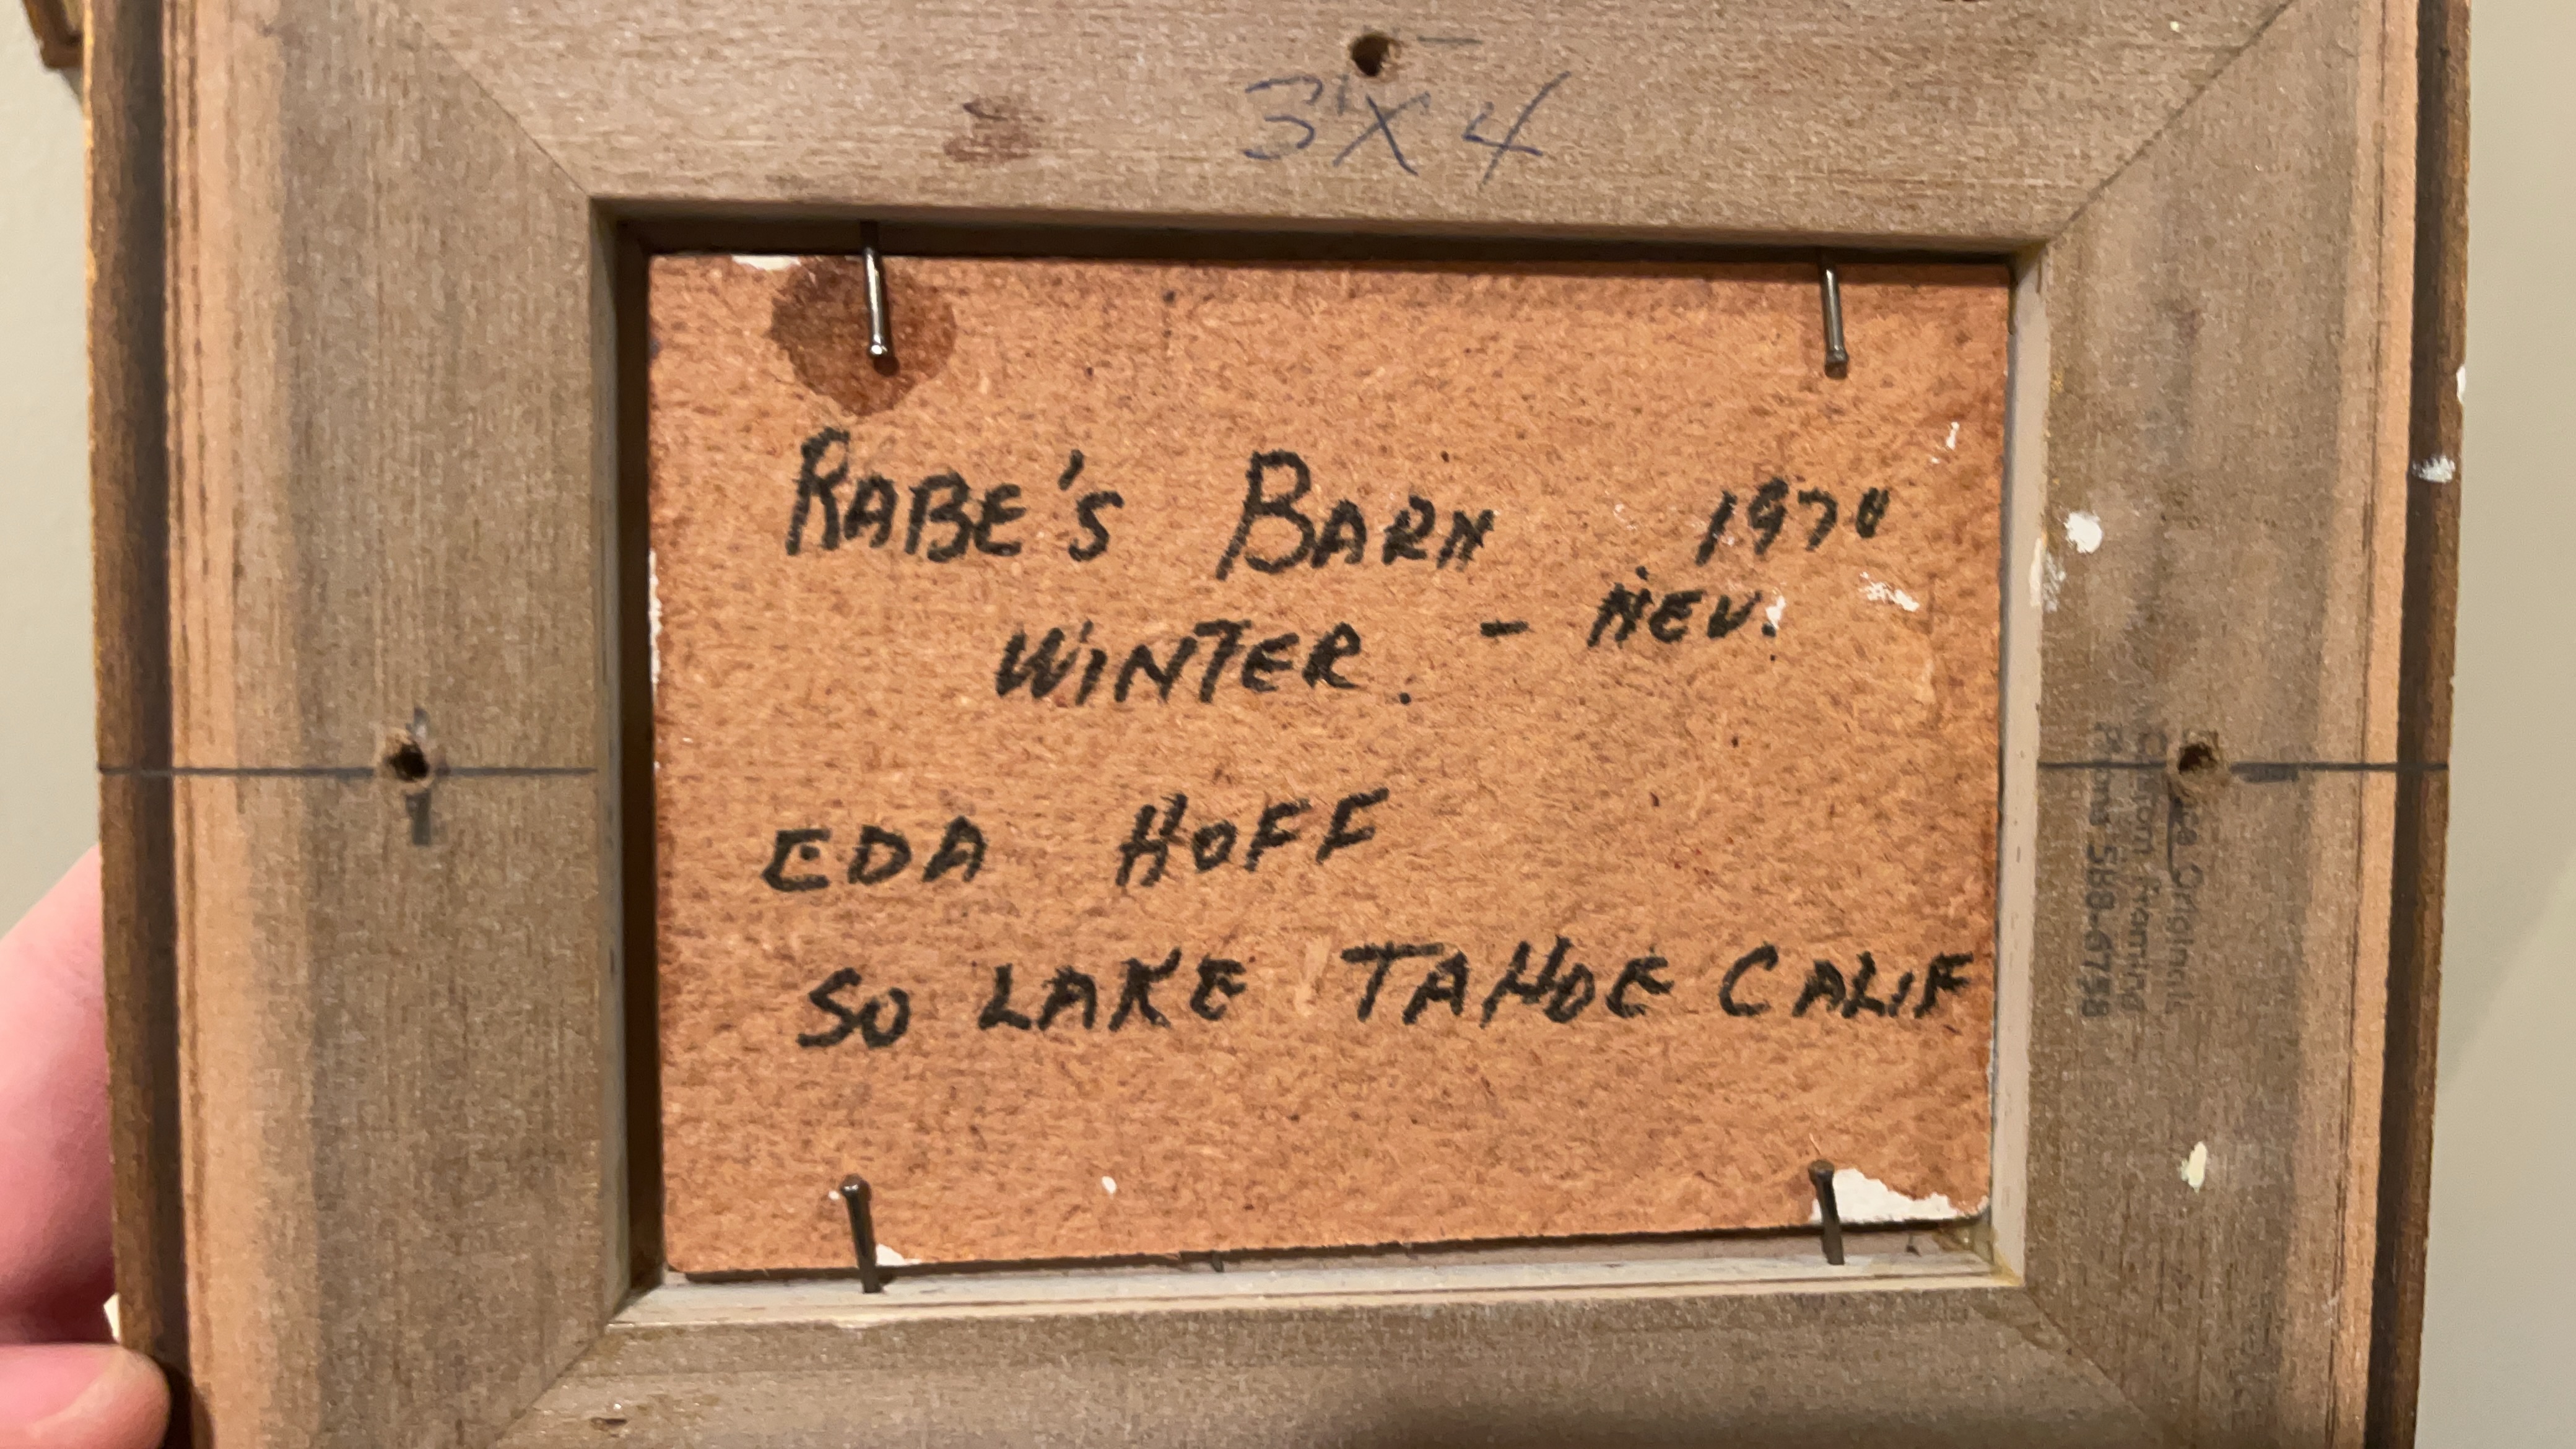 3 X 4
RABE'S BARN 1970
WINTER. - NEV.
EDA HOFF
SO LAKE TAHOE CALIF
Custom Framing
Phone 588-6798